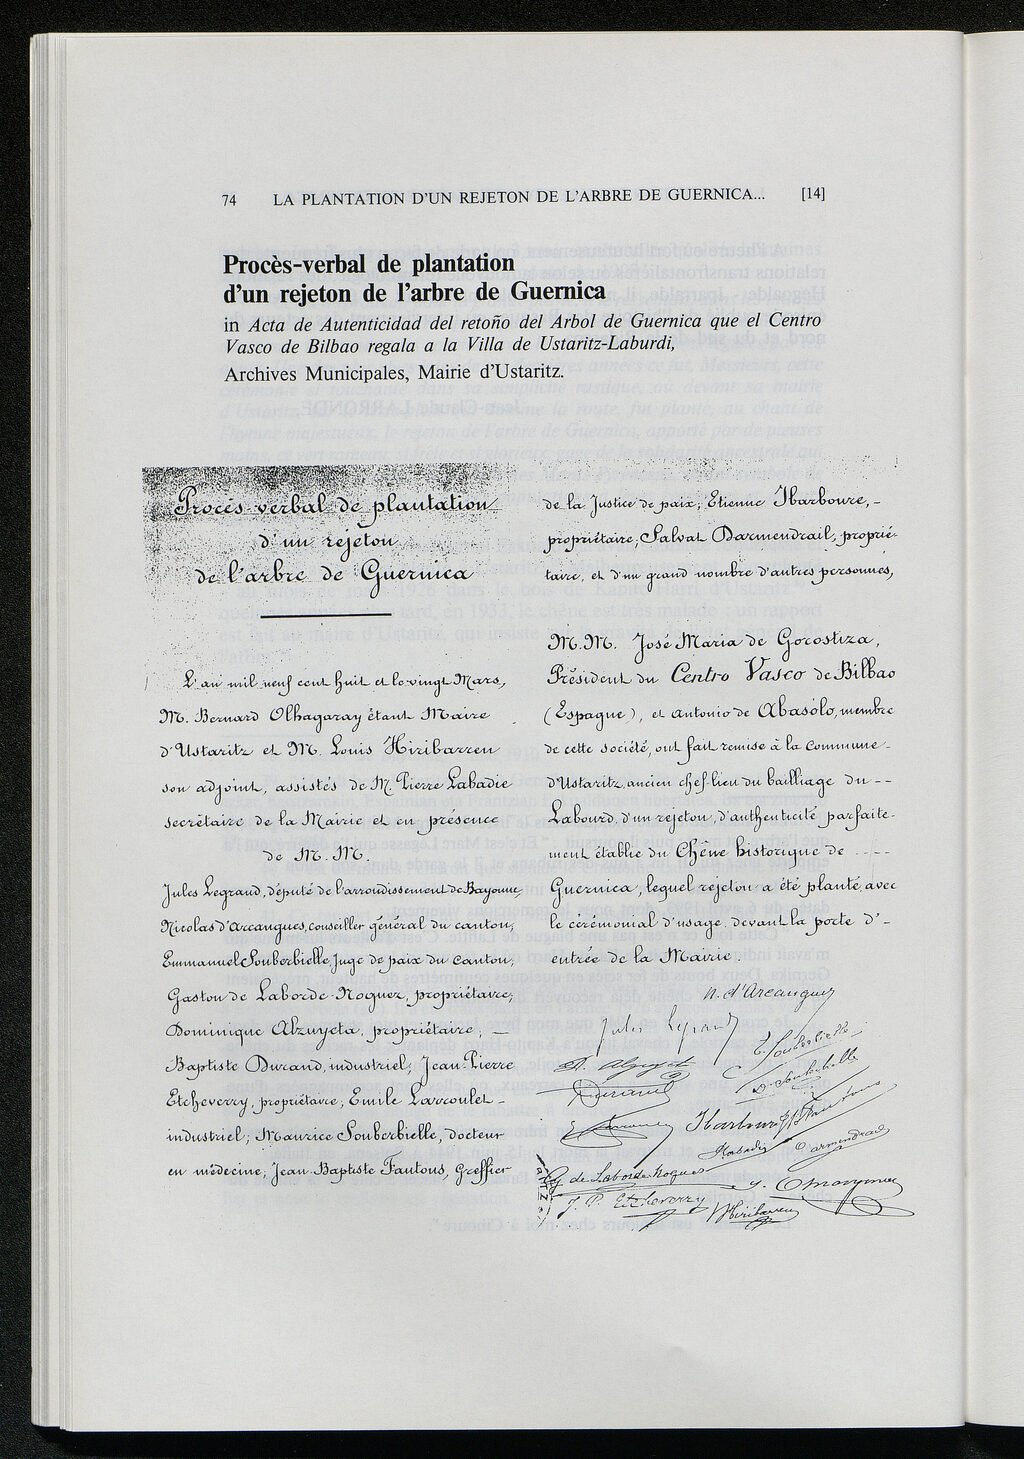 74 LA PLANTATION D'UN REJETON DE L'ARBRE DE GUERNICA... [14]
Procès-verbal de plantation
d'un rejeton de l'arbre de Guernica
in Acta de Autenticidad del retoño del Arbol de Guernica que el Centro
Vasco de Bilbao regala a la Villa de Ustaritz-Laburdi,
Archives Municipales, Mairie d'Ustaritz.
Procès verbal de plantation
d'un rejeton
de l'arbre de Guernica
L'an mil neuf cent huit et le vingt Mars,
M. Bernard Olhagaray étant Maire
d'Ustaritz et M. Louis Hiribarren
son adjoint, assistés de M. Pierre Labadie
secrétaire de la Mairie et en présence
de M.M.
Jules Legrand, député de l'arrondissement de Bayonne,
Nicolas d'Arcangues, conseiller général du canton,
Emmanuel Souberbielle, Juge de paix du canton,
Gaston de Laborde-Noguez, propriétaire,
Dominique Alzuyeta, propriétaire, —
Baptiste Durand, industriel; Jean-Pierre
Etcheverry, propriétaire; Emile Larroulet -
industriel; Maurice Souberbielle, Docteur
en médecine; Jean-Baptiste Fautous, Greffier
de la Justice de paix; Etienne Ibarboure, -
propriétaire; Salvat Darmendrail, proprié-
taire, et d'un grand nombre d'autres personnes,
M.M. José Maria de Gorostiza,
Président du Centro Vasco de Bilbao
(Espagne), et Antonio de Abasólo, membre
de cette société, ont fait remise à la commune -
d'Ustaritz, ancien chef-lieu du bailliage du - -
Labourd, d'un rejeton, d'authenticité parfaite-
ment établie du Chêne historique de - - - -
Guernica, lequel rejeton a été planté, avec
le cérémonial d'usage, devant la porte d'-
entrée de la Mairie.
n. d'Arcangues
Jules Legrand
E. Souberbielle
D. Alzuyeta
Dr Souberbielle
Durand
Ibarboure
J B Fautous
Plabadie
Darmendrail
G. de Laborde Noguez
J. P. Etcheverry
Hiribarren